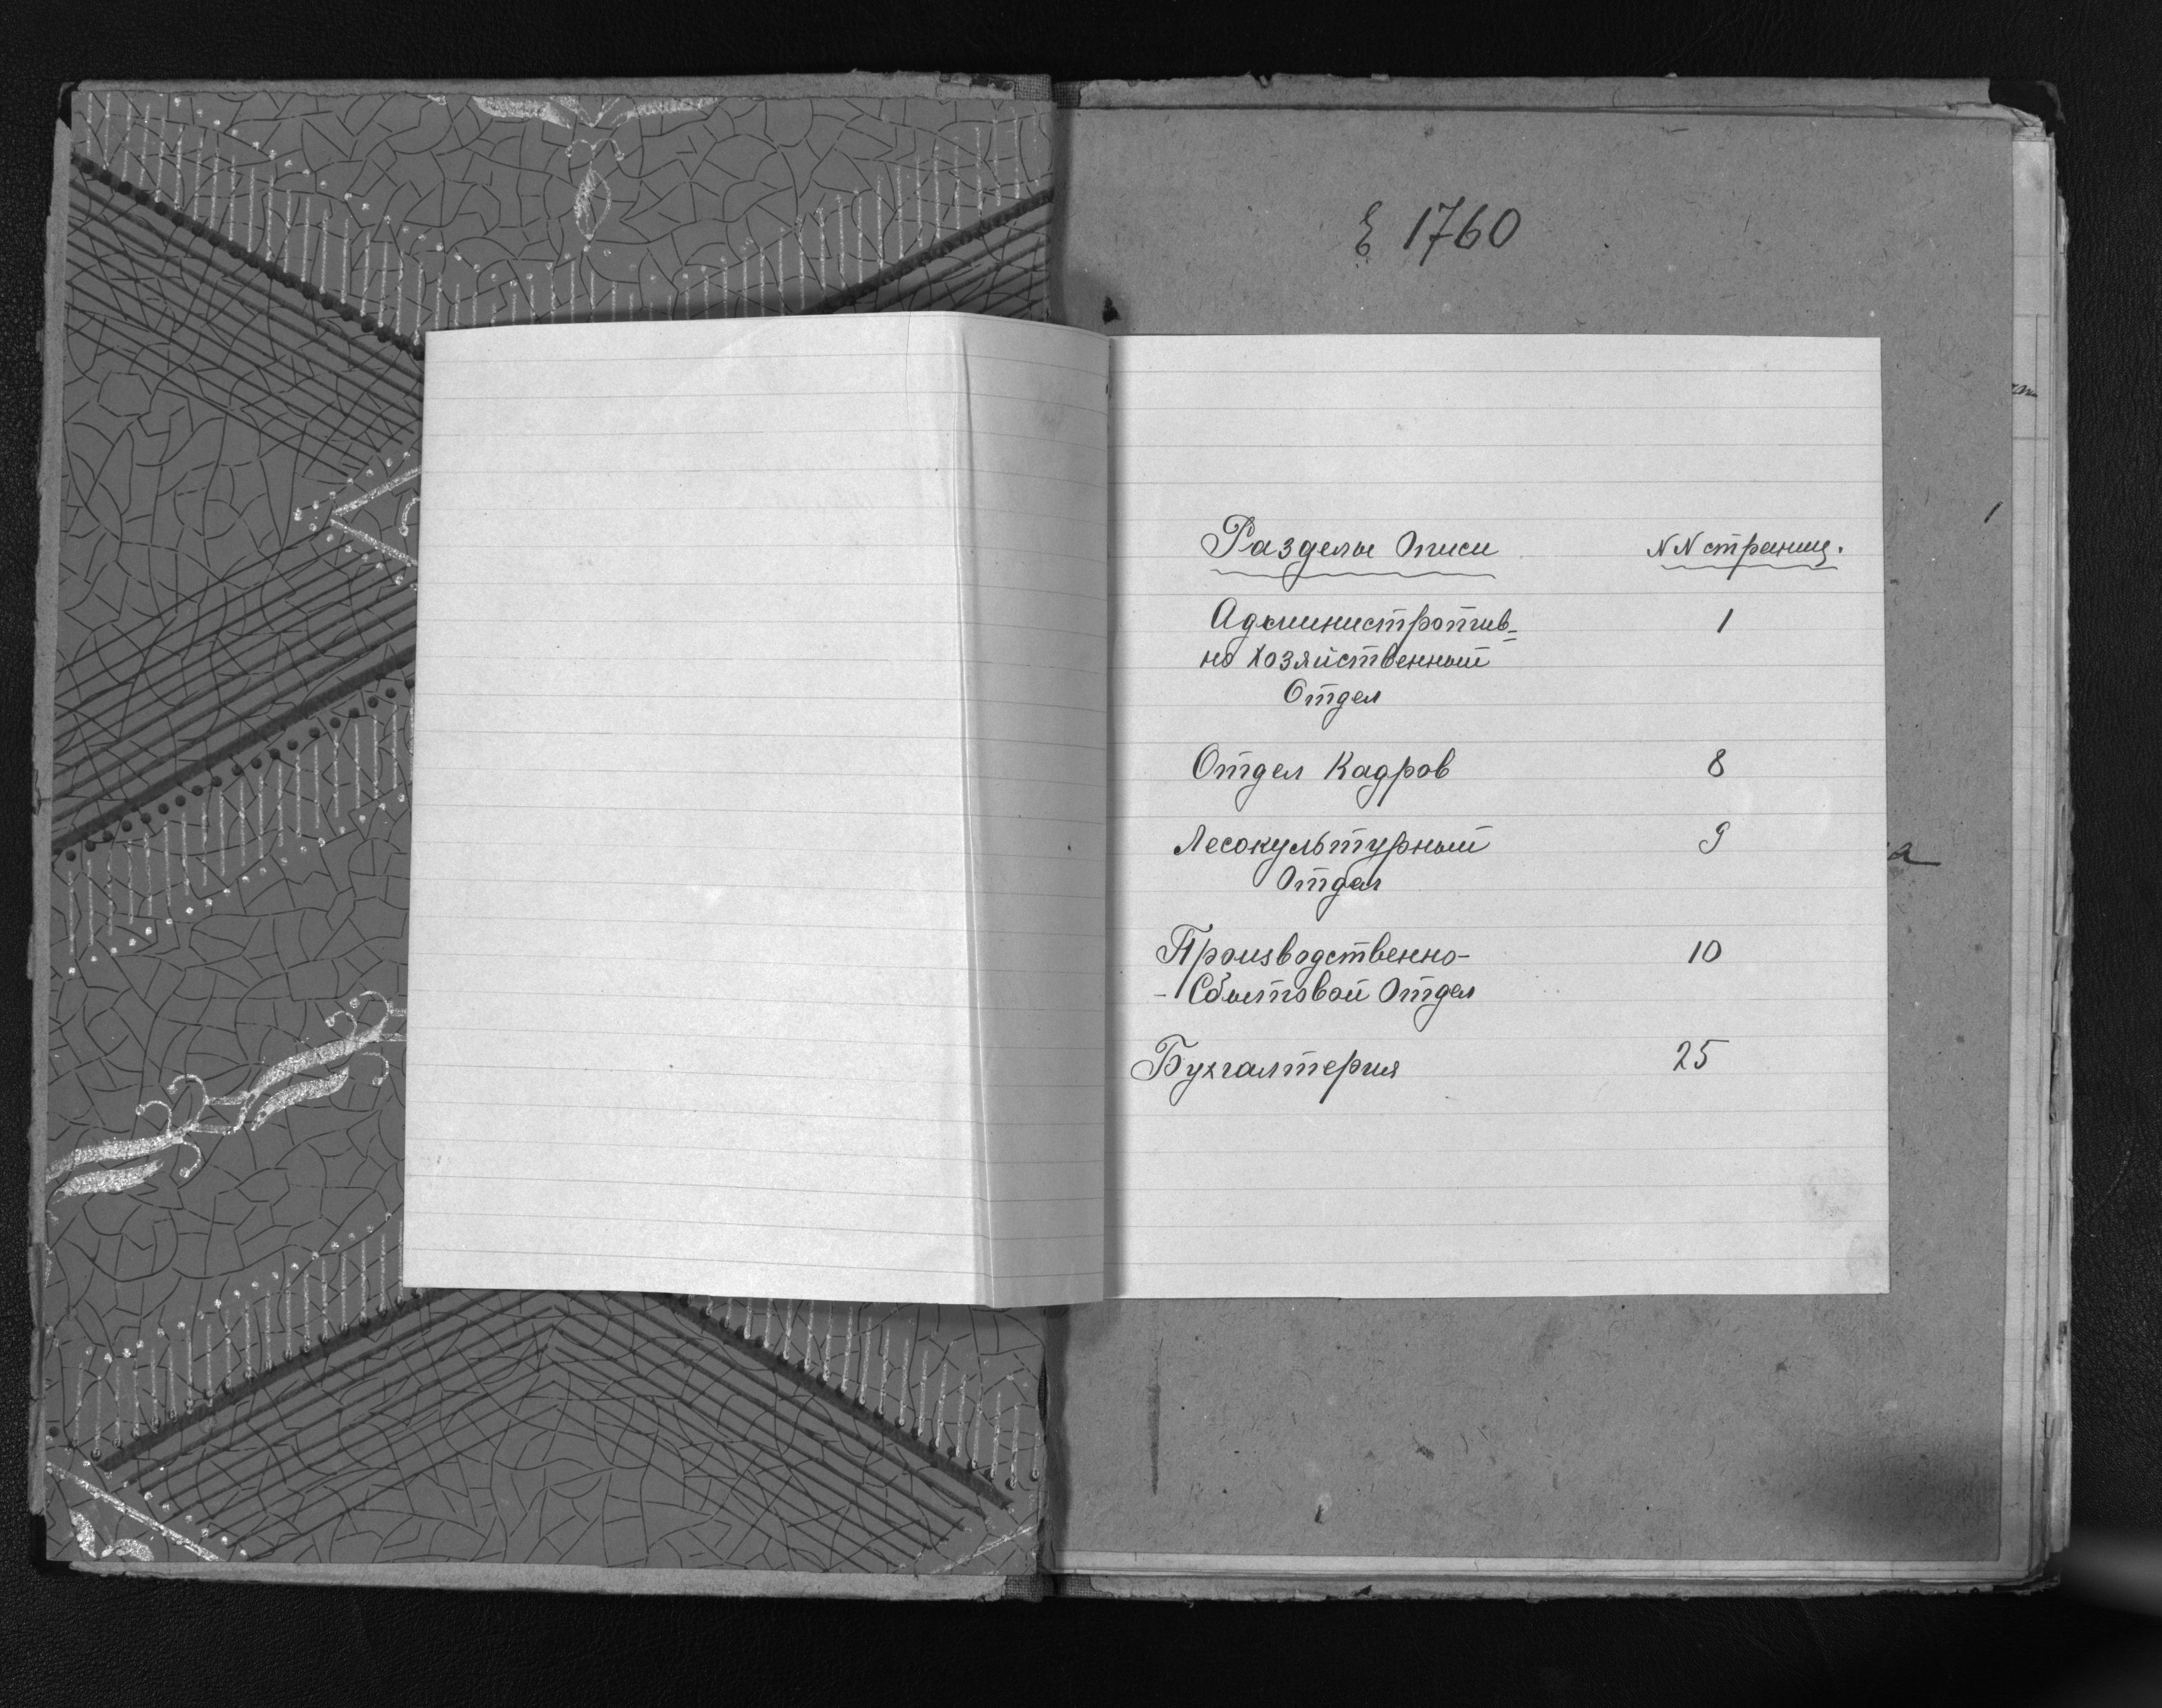 1760
1
Разделы Описи NN страниц.
Административ-
но хозяйственный 1
Отдел
Отдел Кадров 8
Лесокультурный 9
Отдел
Производственно- 10
- Сбытовой Отдел
Бухгалтерия 25